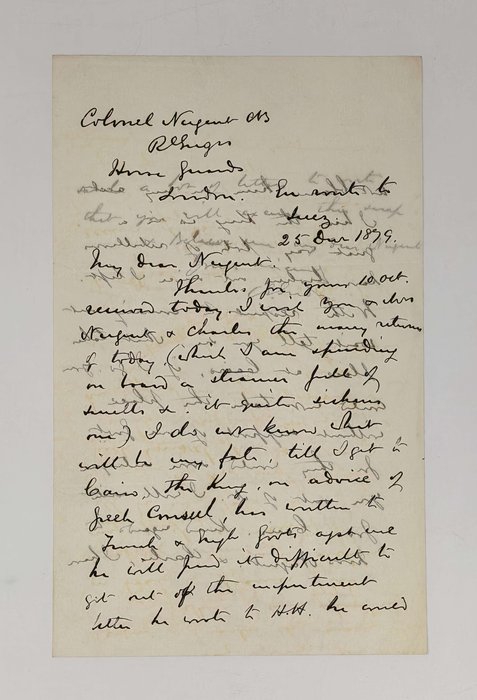 Colonel Nugent CB
RE Engrs
Horse Guards
London. En route to
Suez
25 Dec 1879.
My dear Nugent.
Thanks for yours 10 Oct.
received today I wish you & Mrs
Nugent & Charles the many returns
of today. (which I am spending
on board a steamer full of
smells &c. it quite sickens
one) I do not know what
will be my fate, till I get to
Cairo. The King, on advice of
Greek Consul, has written to
French & Engh Govts agst me
he will find it difficult to
get out of the impertinent
letter he wrote to H.H. he could